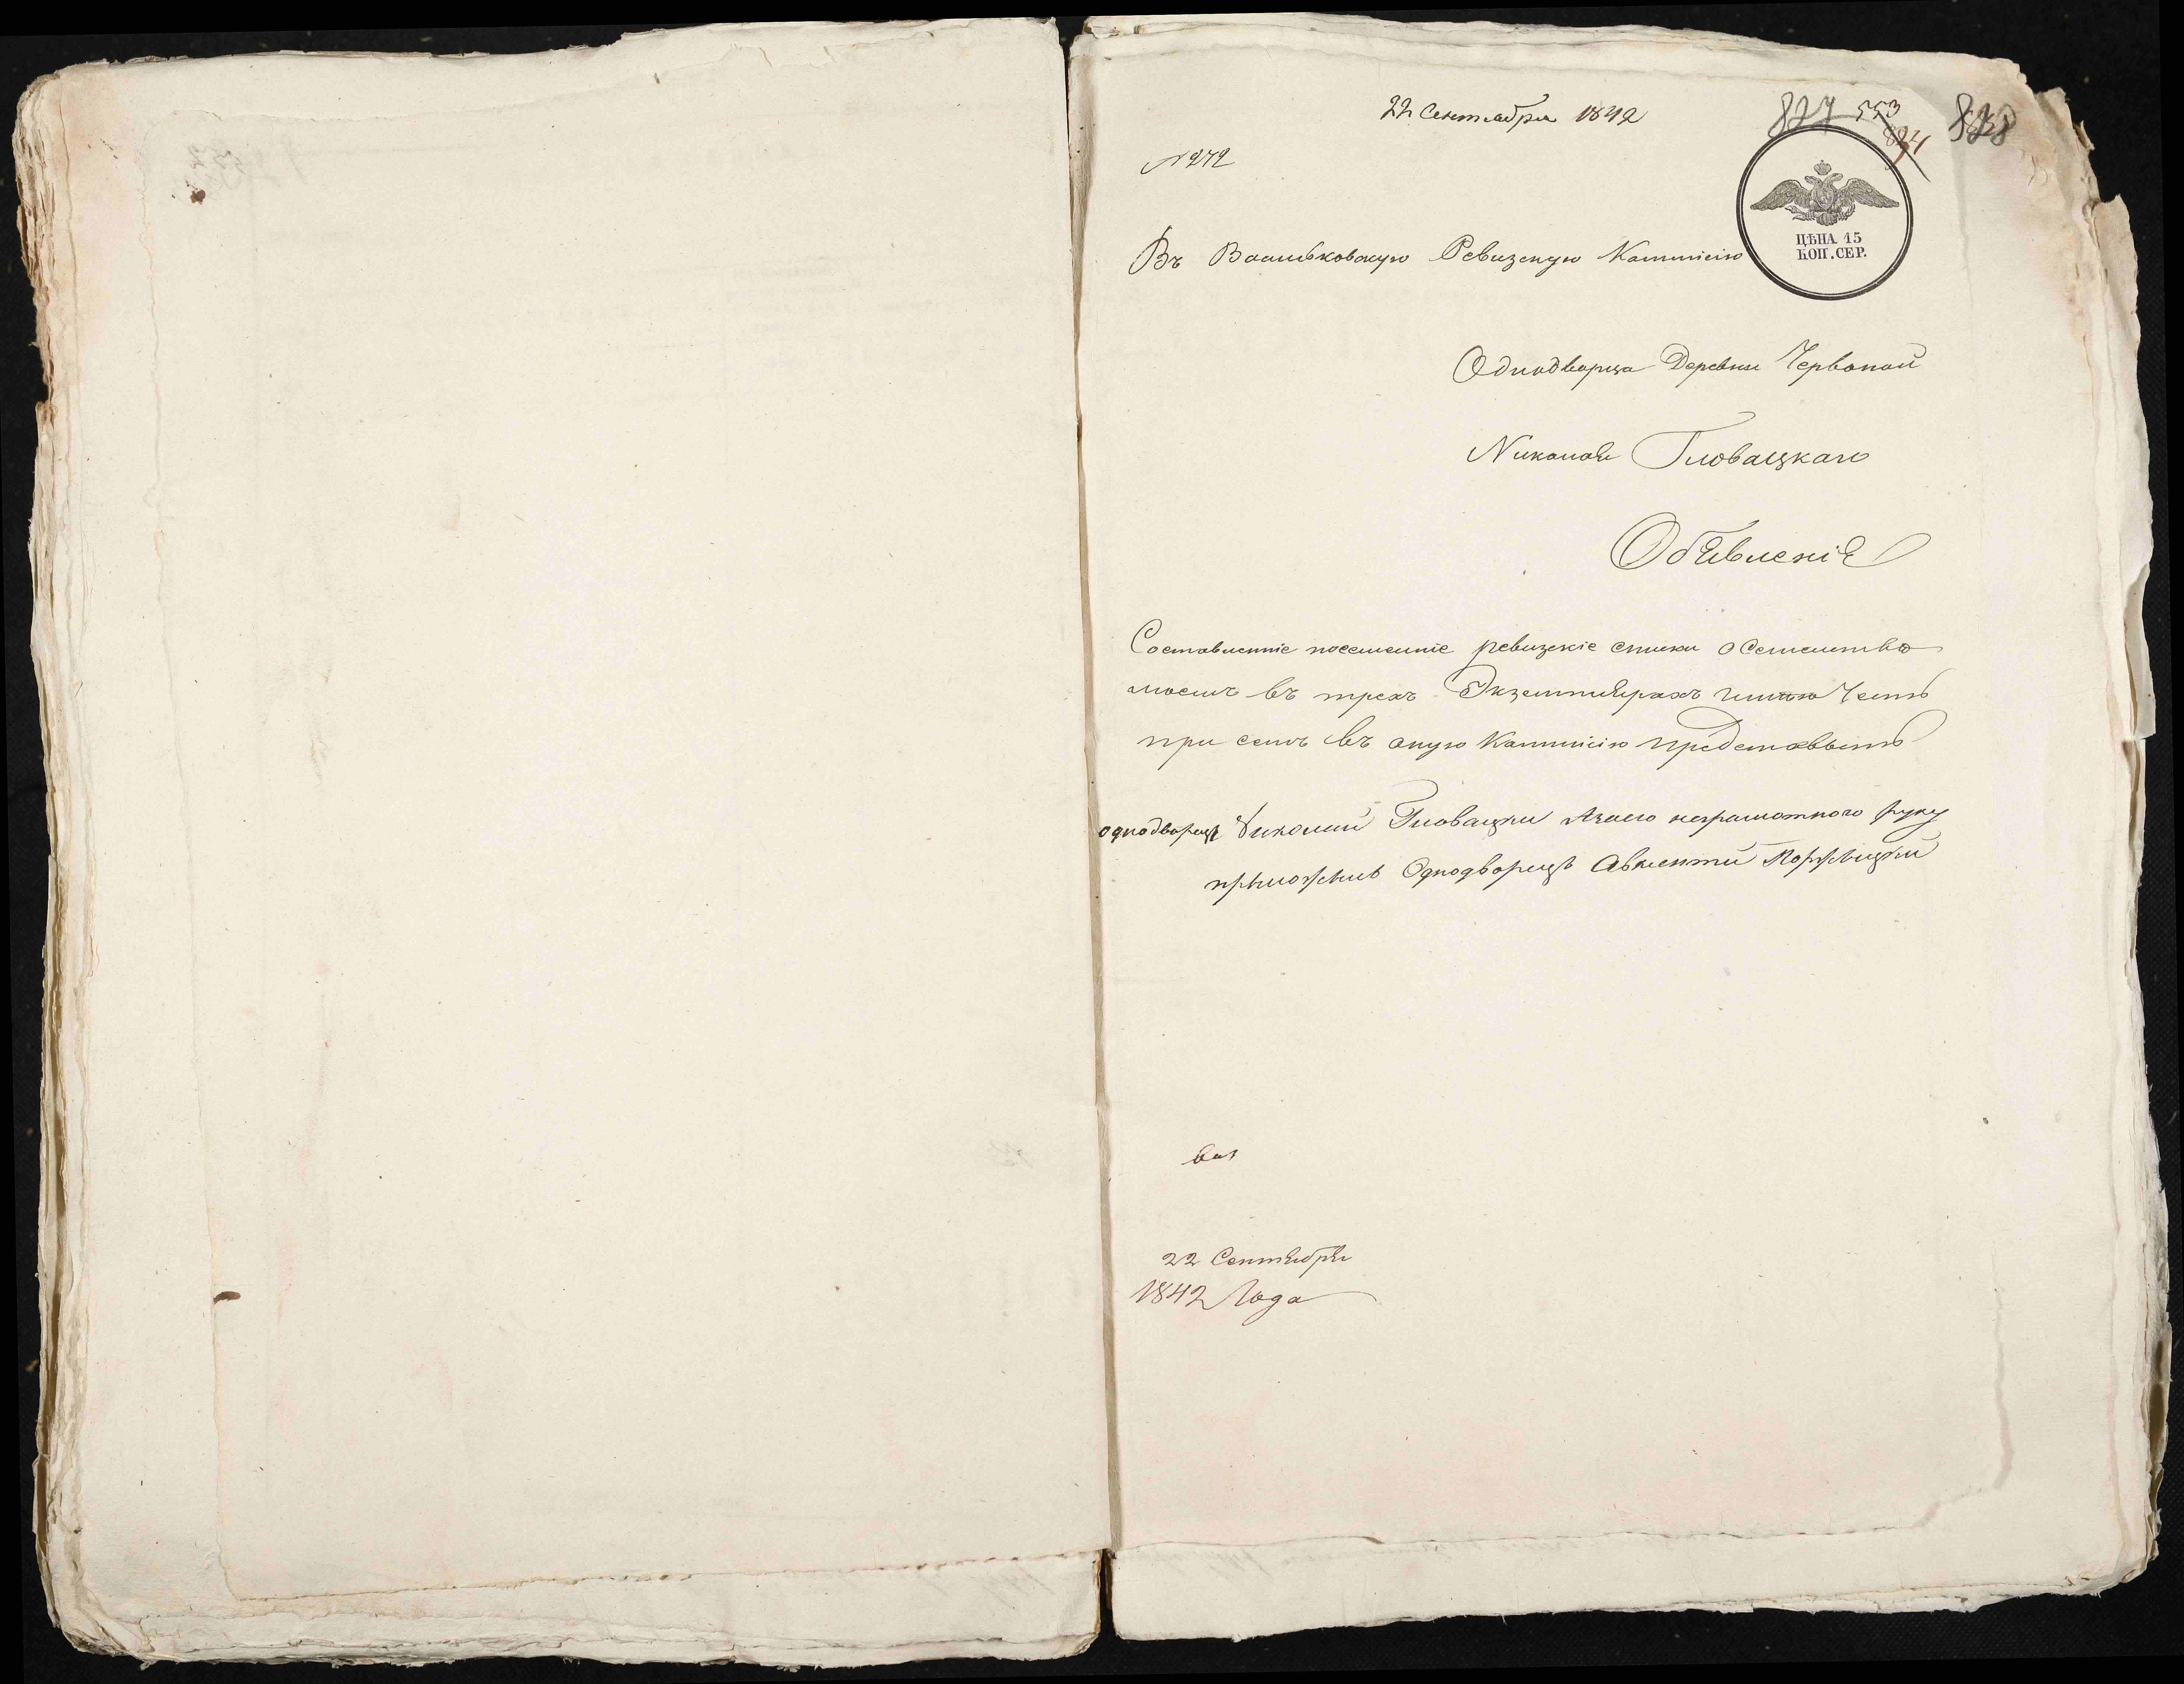 22 Сентября 1842
827 553 828
824
№ 272
ЦѢНА 15
КОП. СЕР.
Въ Васильковскую Ревизскую Коммисію
Однодворца Деревни Червоной
Николая Гловацкаго
Обявленіе
Составленніе посемейніе ревизскіе списки о Семействѣ
моемъ въ трехъ Экземплярахъ имѣю Честь
при семъ въ оную Коммисію представыть
однодворецъ Николай Гловацки Азанего неграмотного руку
прыложывъ Однодворецъ
22 Сентября
1842 Года